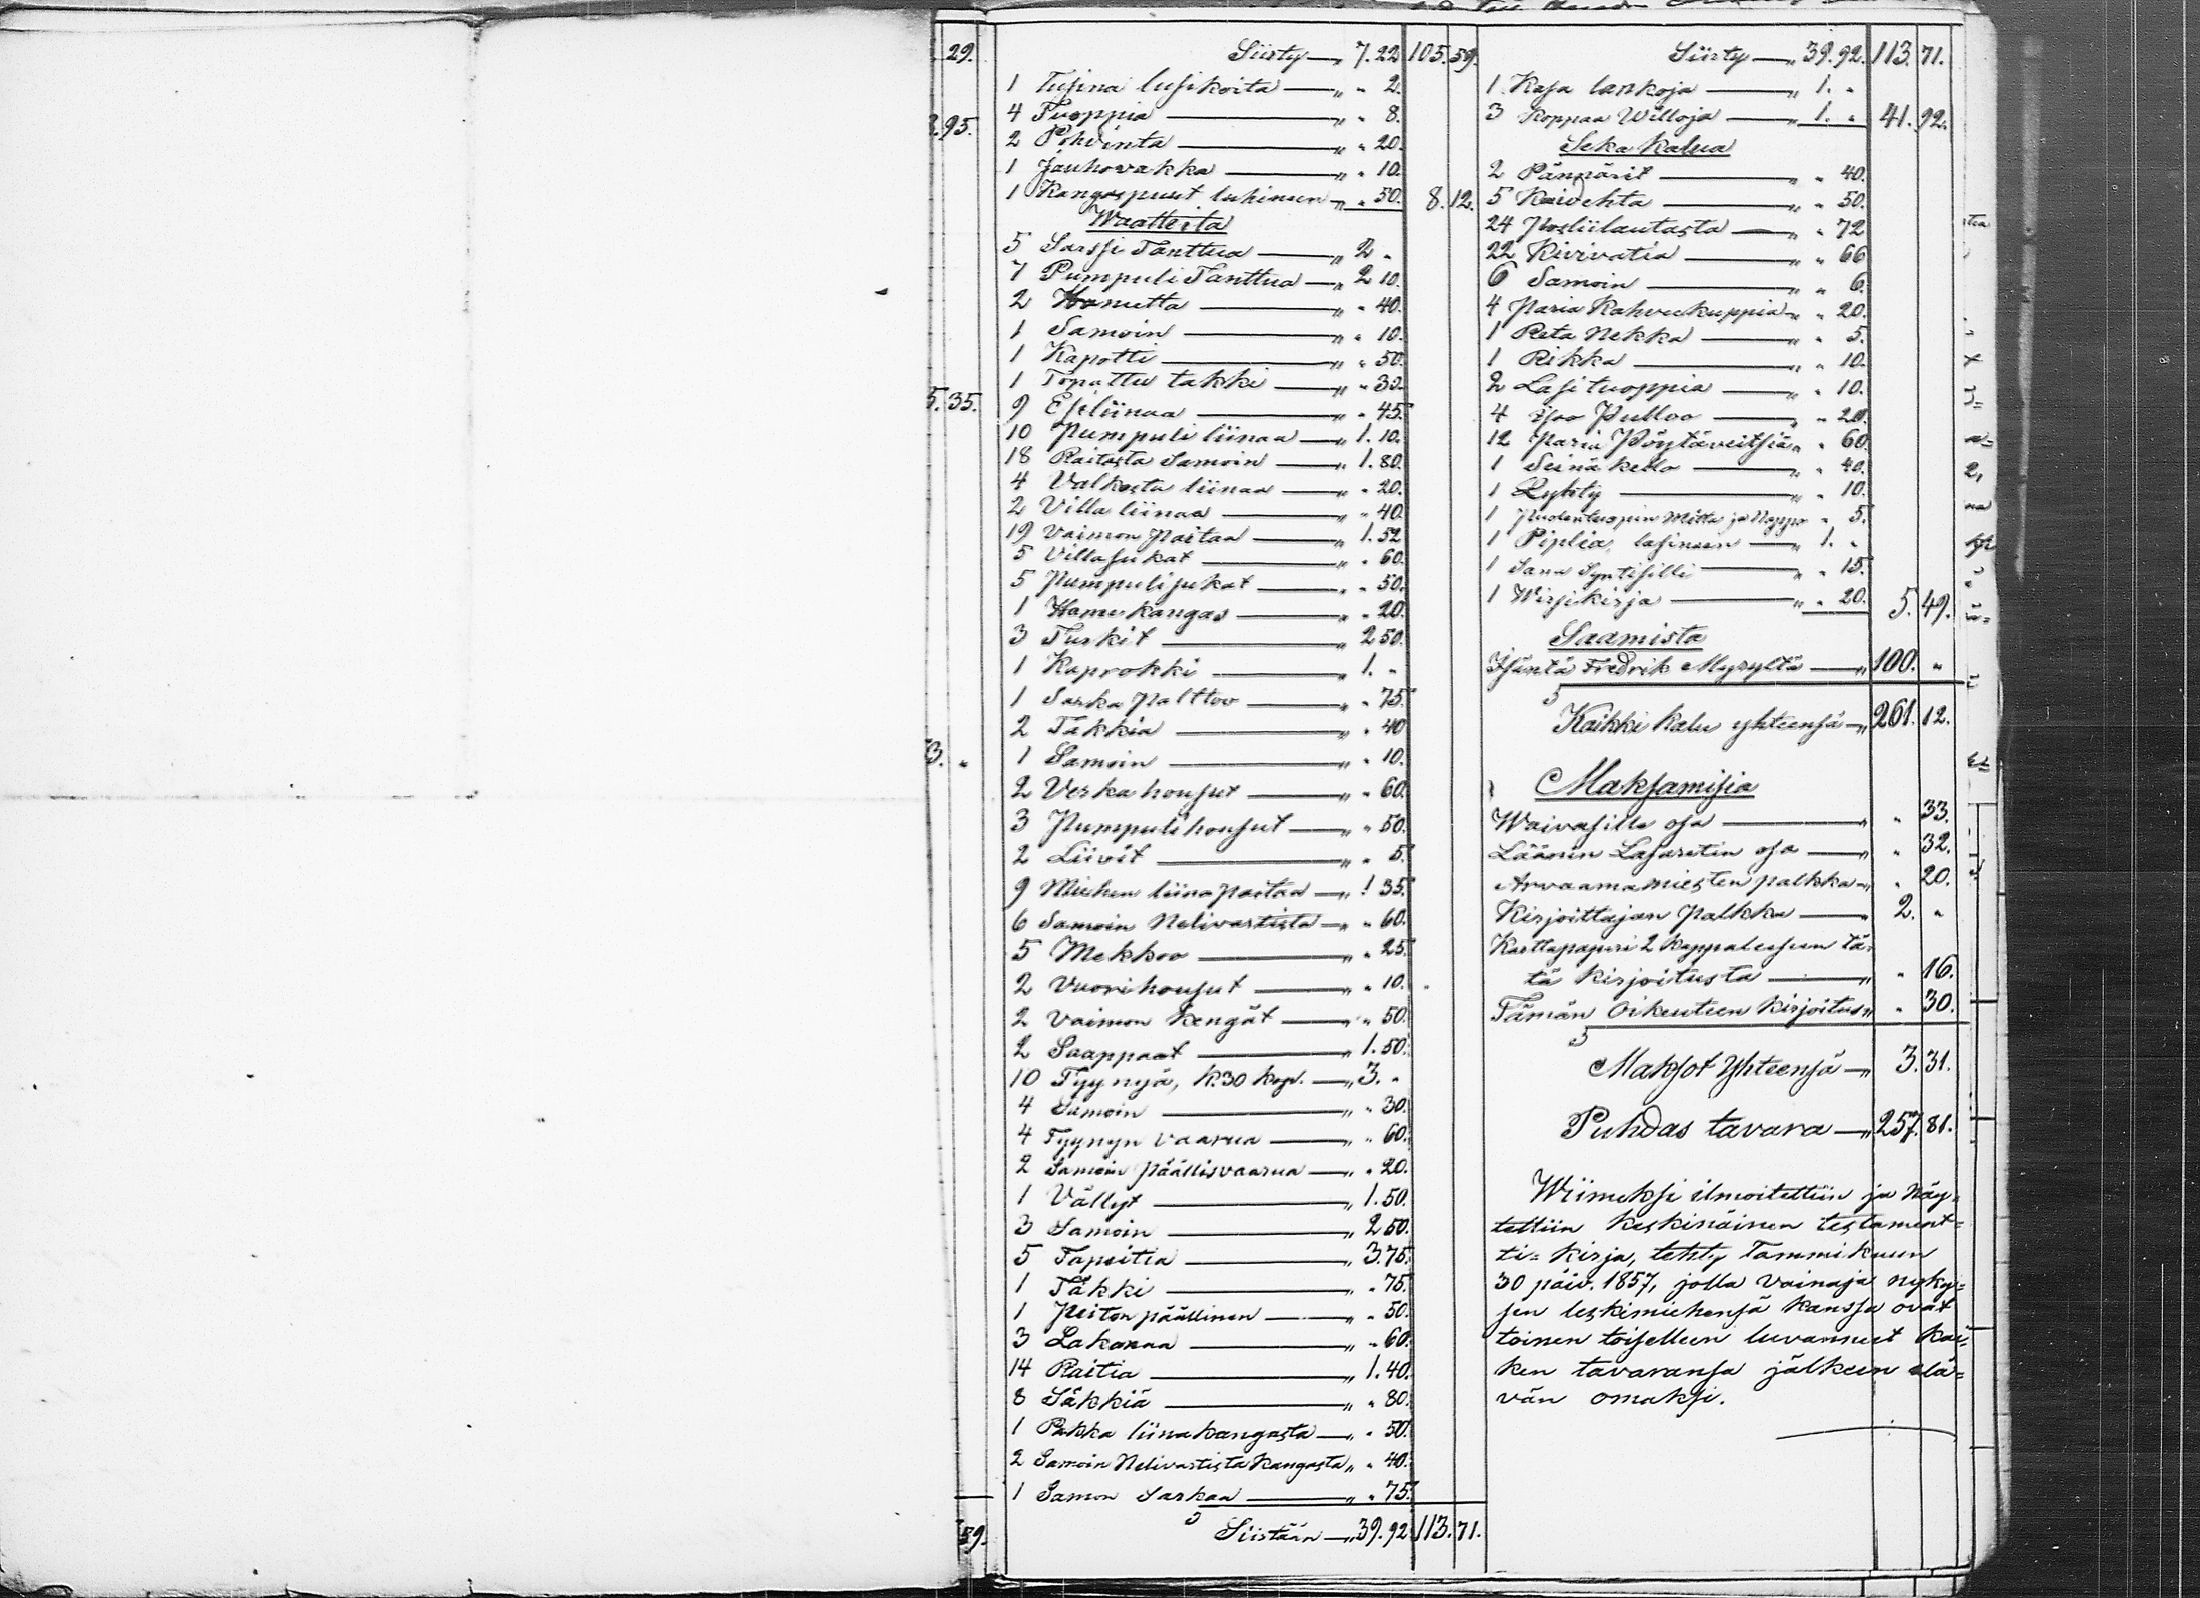 29.
3.95.
5.35.
3. "
59.
Siirty — „ 7.22 105.59.
1 Tusina lusikoita — „ " 2.
4 Tuoppia — „ " 8.
2 Pohdinta — „ " 20.
1 Jauhovakka — „ " 10.
1 Kangaspuut luhineen — „ " 50. 8.12.
Waatteita
5 Sarssi Tanttua — „ 2 "
7 Pumpuli Tanttua — „ 2 10.
2 Hametta — „ " 40.
1 Samoin — „ " 10.
1 Kapotti — „ " 50.
1 Topattu takki — „ " 30.
9 Esiliinaa — „ " 45.
10 Pumpuli liinaa — „ 1.10.
18 Raitasta Samoin — „ 1.80.
4 Valkosta liinaa — „ " 20.
2 Villa liinaa — „ " 40.
19 Vaimon Paitaa — „ 1.52
5 Villasukat — „ " 60.
5 Pumpulisukat — „ " 50.
1 Hamekangas — „ " 20.
3 Turkit — „ 2 50.
1 Kaprokki — „ 1. "
1 Sarka Palttoo — „ " 75.
2 Takkia — „ " 40
1 Samoin — „ " 10.
2 Verkahousut — „ " 60.
3 Pumpulihousut — „ " 50.
2 Liivit — „ " 5.
9 Miehen liinapaitaa — „ 1 35.
6 Samoin Nelivartista — „ " 60.
5 Mekkoo — „ " 25.
2 Vuorihousut — „ " 10.
2 Vaimon Kengät — „ " 50.
2 Saappaat — „ 1.50.
10 Tyynyä, K.30 kop. — „ 3. "
4 Samoin — „ " 30.
4 Tyynyn vaarua — „ " 60.
2 Samoin päällisvaarua — „ " 20.
1 Vällyt — „ 1.50.
3 Samoin — „ 2 50.
5 Tapeitia — „ 3.75.
1 Täkki — „ " 75.
1 Peiton päällinen — „ " 50.
3 Lakanaa — „ " 60.
14 Raitia — „ 1.40.
8 Säkkiä — „ " 80.
1 Pakka liinakangasta — „ " 50.
2 Samoin Nelivartista Kangasta „ " 40.
1 Samon Sarkaa — „ " 75.
Siistään — „ 39.92 113.71.
Siirty — „ 39.92. 113.71.
1 Kasa lankoja — „ 1. "
3 Koppaa Willoja — „ 1. " 41.92.
Seka Kalua
2 Pännärit — „ " 40.
5 Kaidehta — „ " 50.
24 Posliilautasta — „ " 72
22 Kivivatia — „ " 66
6 Samoin — „ " 6.
4 Paria Kahveekuppia „ " 20.
1 Reta Nekka — „ " 5.
1 Rikka — „ " 10.
2 Lasituoppia — „ " 10.
4 isoo Pulloo — „ " 20.
12 Paria Pöytäveitsiä „ " 60.
1 Seinä kello — „ " 40.
1 Lyhty — „ " 10.
1 Puolentuopin Mitta ja Nappo " 5.
1 Piplia, lasineen — „ 1. "
1 Sana Syntisilli — „ " 15.
1 Wirsikirja — „ " 20. 5.49.
Saamista
Isäntä Fredrik Myryltä — „ 100. "
Kaikki kalu yhteensä — „ 261.12.
Maksamisia
Waivasille osa — „ " 33.
Läänin Lasaretin osa — „ " 32.
Arvaamamiesten palkka „ " 20.
Kirjoittajan Palkka — „ 2. "
Karttapaperi 2 kappaleseen tä-
tä kirjoitusta — „ " 16.
Tämän Oikeuteen kirjoitus „ " 30.
Maksot Yhteensä — „ 3.31.
Puhdas tavara — „ 257.81.
Wiimeksi ilmoitettiin ja näy=
tettiin keskinäinen testament=
ti=kirja, tehty Tammikuun
30 päiv. 1857, jolla vainaja nyky=
sen leskimiehensä kanssa ovat
toinen toiselleen luvannut kai=
ken tavaransa jälkeen elä=
vän omaksi.